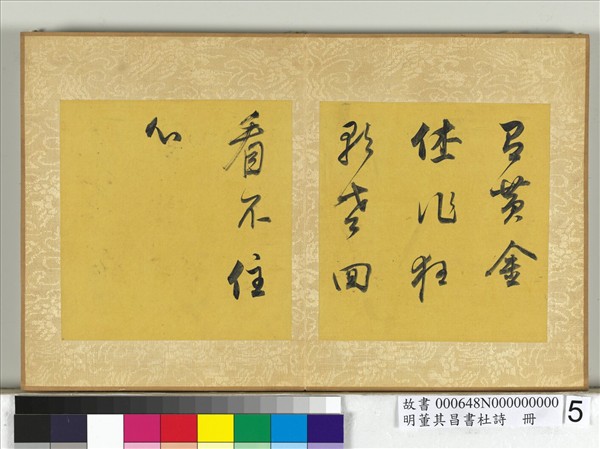 有黄金
休作狂
歌老回
看不住
心
故書 000648N000000000
明董其昌書杜詩 冊
5